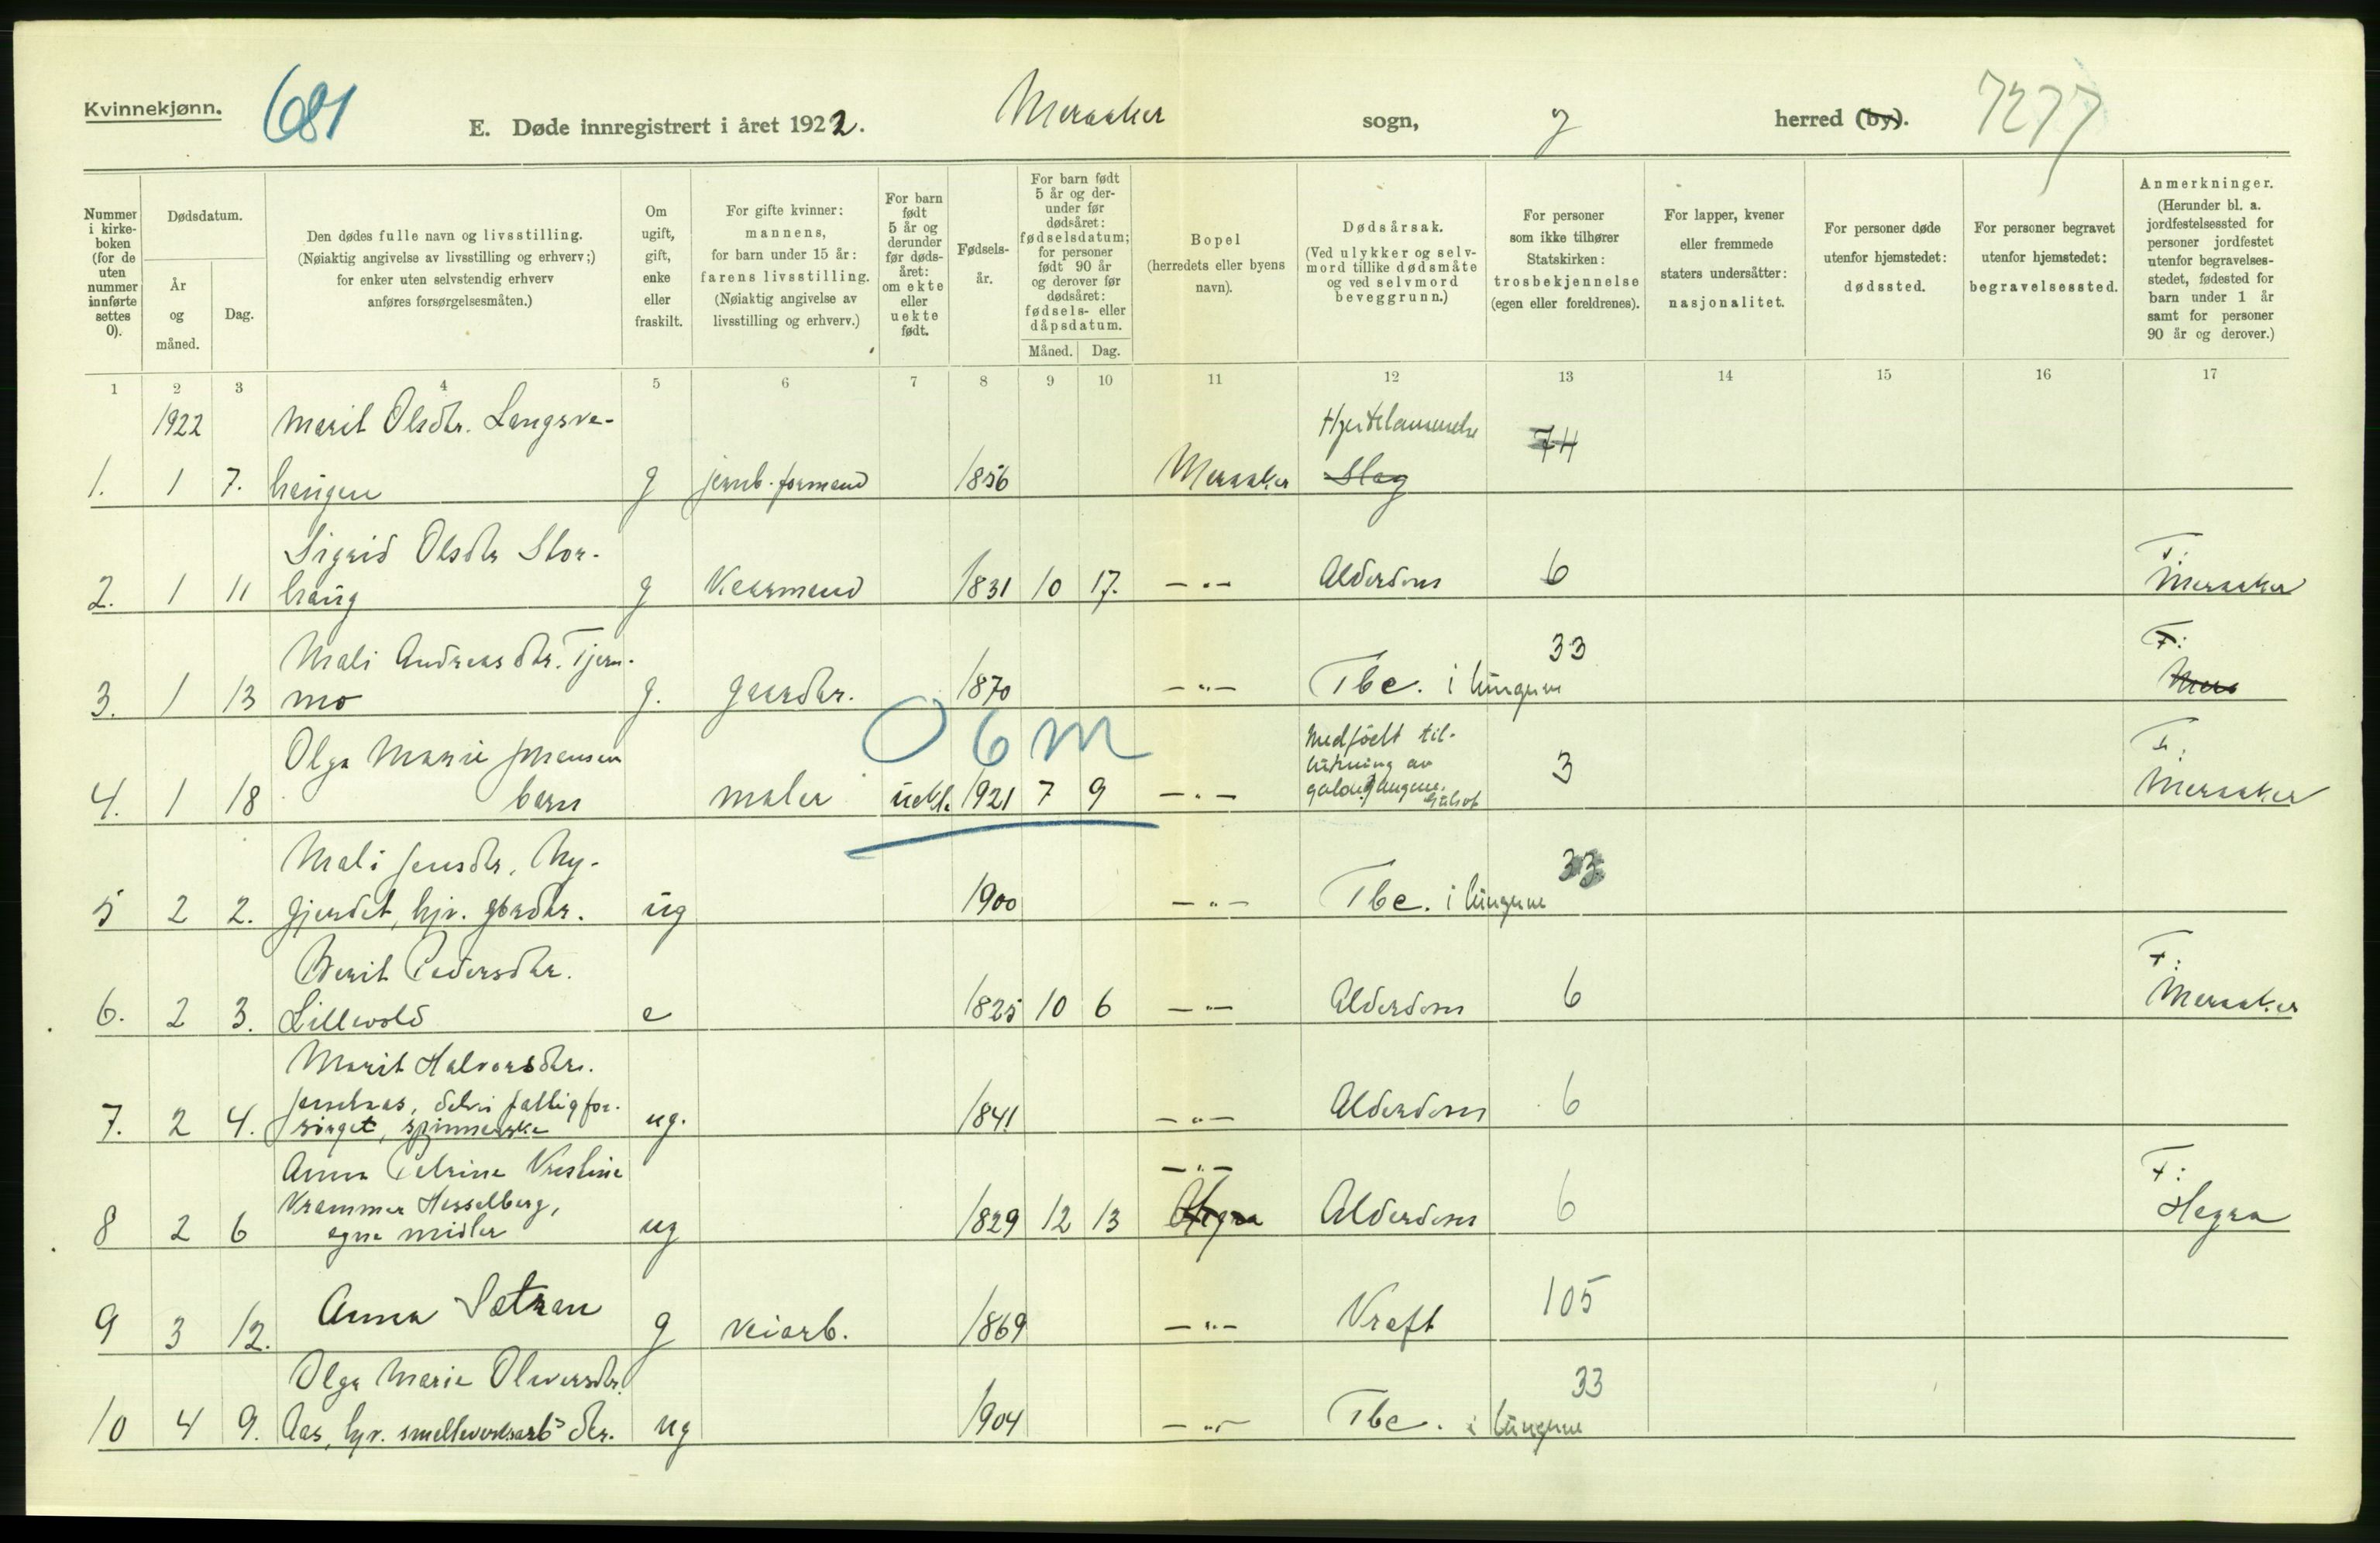 Kvinnekjønn.
681
E. Døde innregistrert i året 1922.
Meraaker sogn, g herred (by).
7277
Nummer i kirkeboken (for de uten nummer innførte settes 0).
Dødsdatum.
År og måned.
Dag.
Den dødes fulle navn og livsstilling.
(Nøiaktig angivelse av livsstilling og erhverv;)
for enker uten selvstendig erhverv
anføres forsørgelsesmåten.)
Om ugift, gift, enke eller fraskilt.
For gifte kvinner:
mannens,
for barn under 15 år:
farens livsstilling.
(Nøiaktig angivelse av
livsstilling og erhverv.)
For barn født 5 år og derunder før dødsåret: om ekte eller uekte født.
Fødselsår.
For barn født 5 år og derunder før dødsåret: fødselsdatum; for personer født 90 år og derover før dødsåret: fødsels- eller dåpsdatum.
Måned.
Dag.
Bopel
(herredets eller byens navn).
Dødsårsak.
(Ved ulykker og selvmord tillike dødsmåte og ved selvmord beveggrunn.)
For personer som ikke tilhører Statskirken: trosbekjennelse (egen eller foreldrenes).
For lapper, kvener eller fremmede staters undersåtter: nasjonalitet.
For personer døde utenfor hjemstedet: dødssted.
For personer begravet utenfor hjemstedet: begravelsessted.
Anmerkninger.
(Herunder bl. a. jordfestelsessted for personer jordfestet utenfor begravelsesstedet, fødested for barn under 1 år samt for personer 90 år og derover.)
1 2 3 4 5 6 7 8 9 10 11 12 13 14 15 16 17
1922 Marit Olsdtr. Langsve- Hjertelammelse 74
1. 1 7. haugen g jernb. formand 1856 Meraaker Slag
Sigrid Olsdtr Stor- F:
2. 1 11 haug g Kaarmand 1831 10 17. —"— Alderdom 6 Meraaker
Mali Andreasdtr. Tjern- 33 F:
3. 1 13 mo g. gaardbr. 1870 —"— Tbc. i lungene Mera
0 6 m
Olga Marie Jensen Medfødt til- F:
4. 1 18 barn maler uekte 1921 7 9 —"— lukning av 3 Meraaker
Mali Jensdtr. Ny- 33
5 2 2. gjerdet, hjv. gbrdtr. ug 1900 —"— Tbc. i lungene
Berit Pedersdtr. F:
6. 2 3. Lillevold e 1825 10 6 —"— Alderdom 6 Meraaker
Marit Halvorsdtr.
7. 2 4. delvis fattigfor- ug. 1841 —"— Alderdom 6
sørget, spinnerske
Anna Petrine Kristine —"— F:
Krammer Hesselberg,
8 2 6 egne midler ug 1829 12 13 Hegra Alderdom 6 Hegra
9 3 12. Anna Sætran g veiarb. 1869 —"— Kræft 105
Olga Marie Oliversdtr. 33
10 4 9. Aas, hjv. smelteverksarb.s dtr. ug 1904 —"— Tbc. i lungene